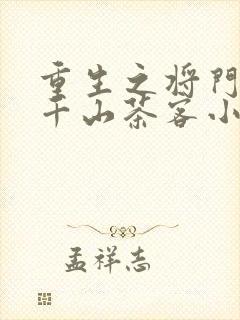 重生之将門
千山茶客小
孟祥志